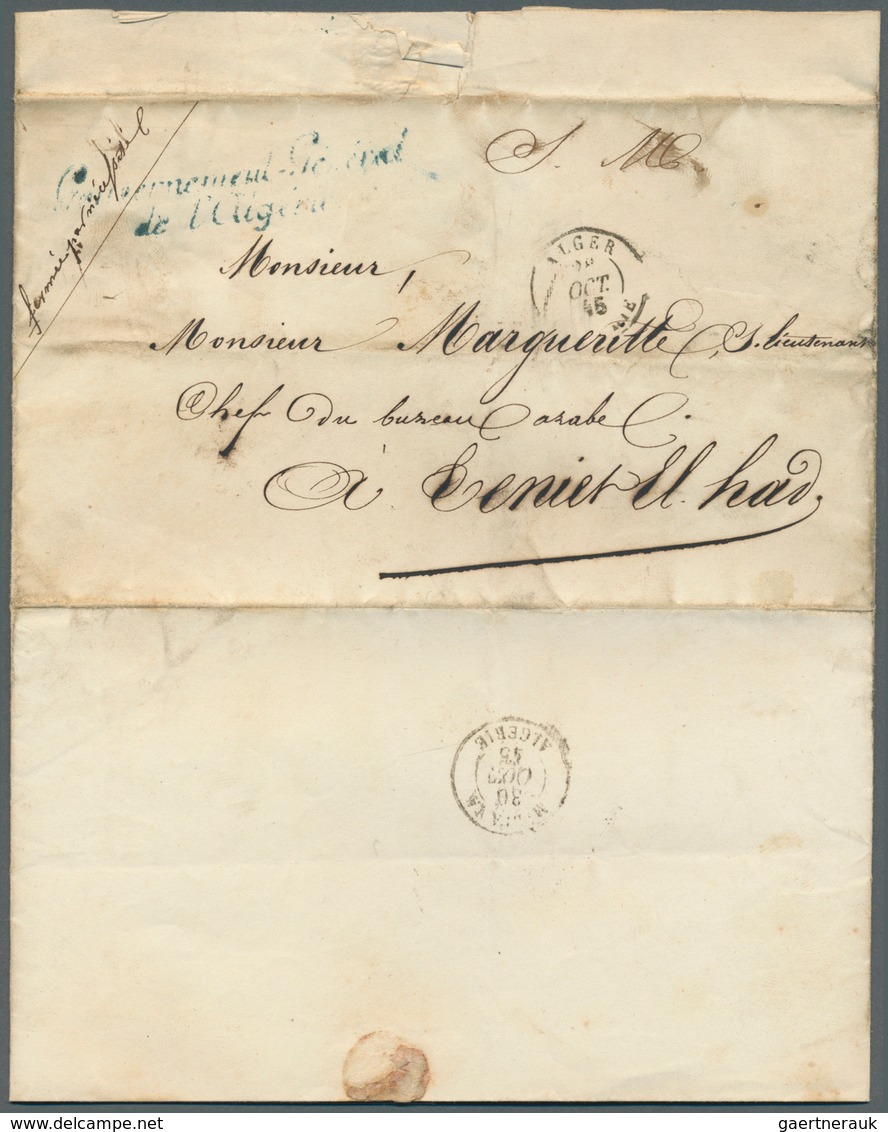 S. M.
Gouvernement-Général
de l'Algérie
fermée par nécessité
ALGER
OCT.
45
Monsieur,
Monsieur Margueritte, S. lieutenant
Chef du bureau arabe
à Teniet El. had.
ALGERIE
45
OCT
30
gaertnerauk